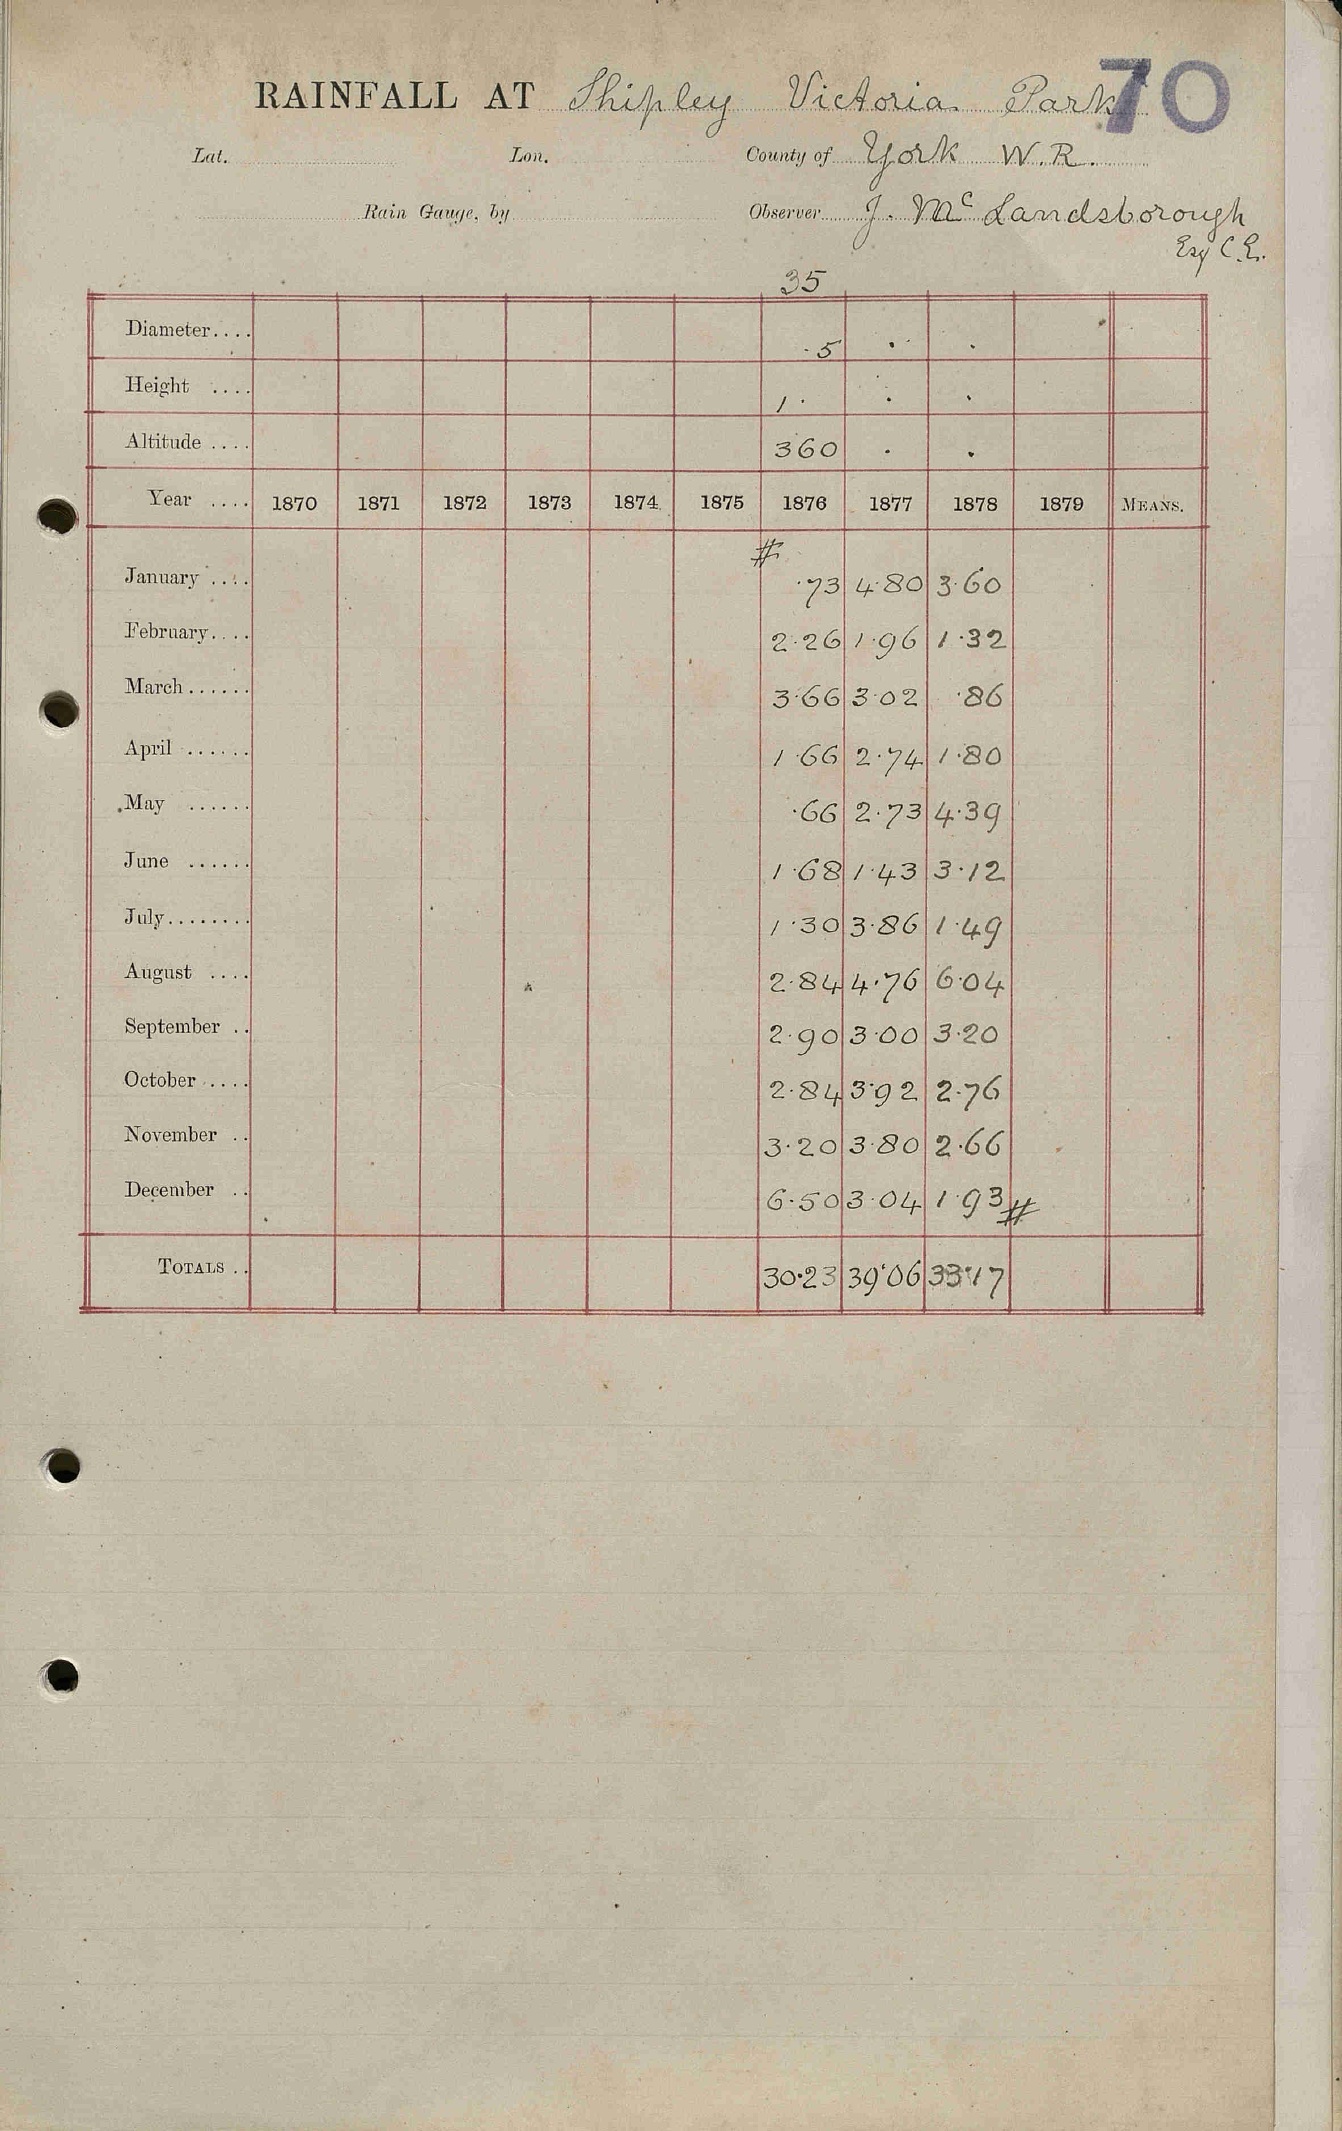 70
RAINFALL AT Shipley Victoria Park
Lat. Lon. County of York W.R.
Rain Gauge, by Observer J. McLandsborough
Esq C.E.
35
Diameter.... ·5 · ·
Height .... 1· · ·
Altitude .... 360 · ·
Year .... 1870 1871 1872 1873 1874 1875 1876 1877 1878 1879 MEANS.
#
January .... ·73 4·80 3·60
February.... 2·26 1·96 1·32
March...... 3·66 3·02 ·86
April ...... 1·66 2·74 1·80
May ...... ·66 2·73 4·39
June ...... 1·68 1·43 3·12
July........ 1·30 3·86 1·49
August .... 2·84 4·76 6·04
September .. 2·90 3·00 3·20
October .... 2·84 3·92 2·76
November .. 3·20 3·80 2·66
December .. 6·50 3·04 1·93 #
TOTALS .. 30·23 39·06 33·17